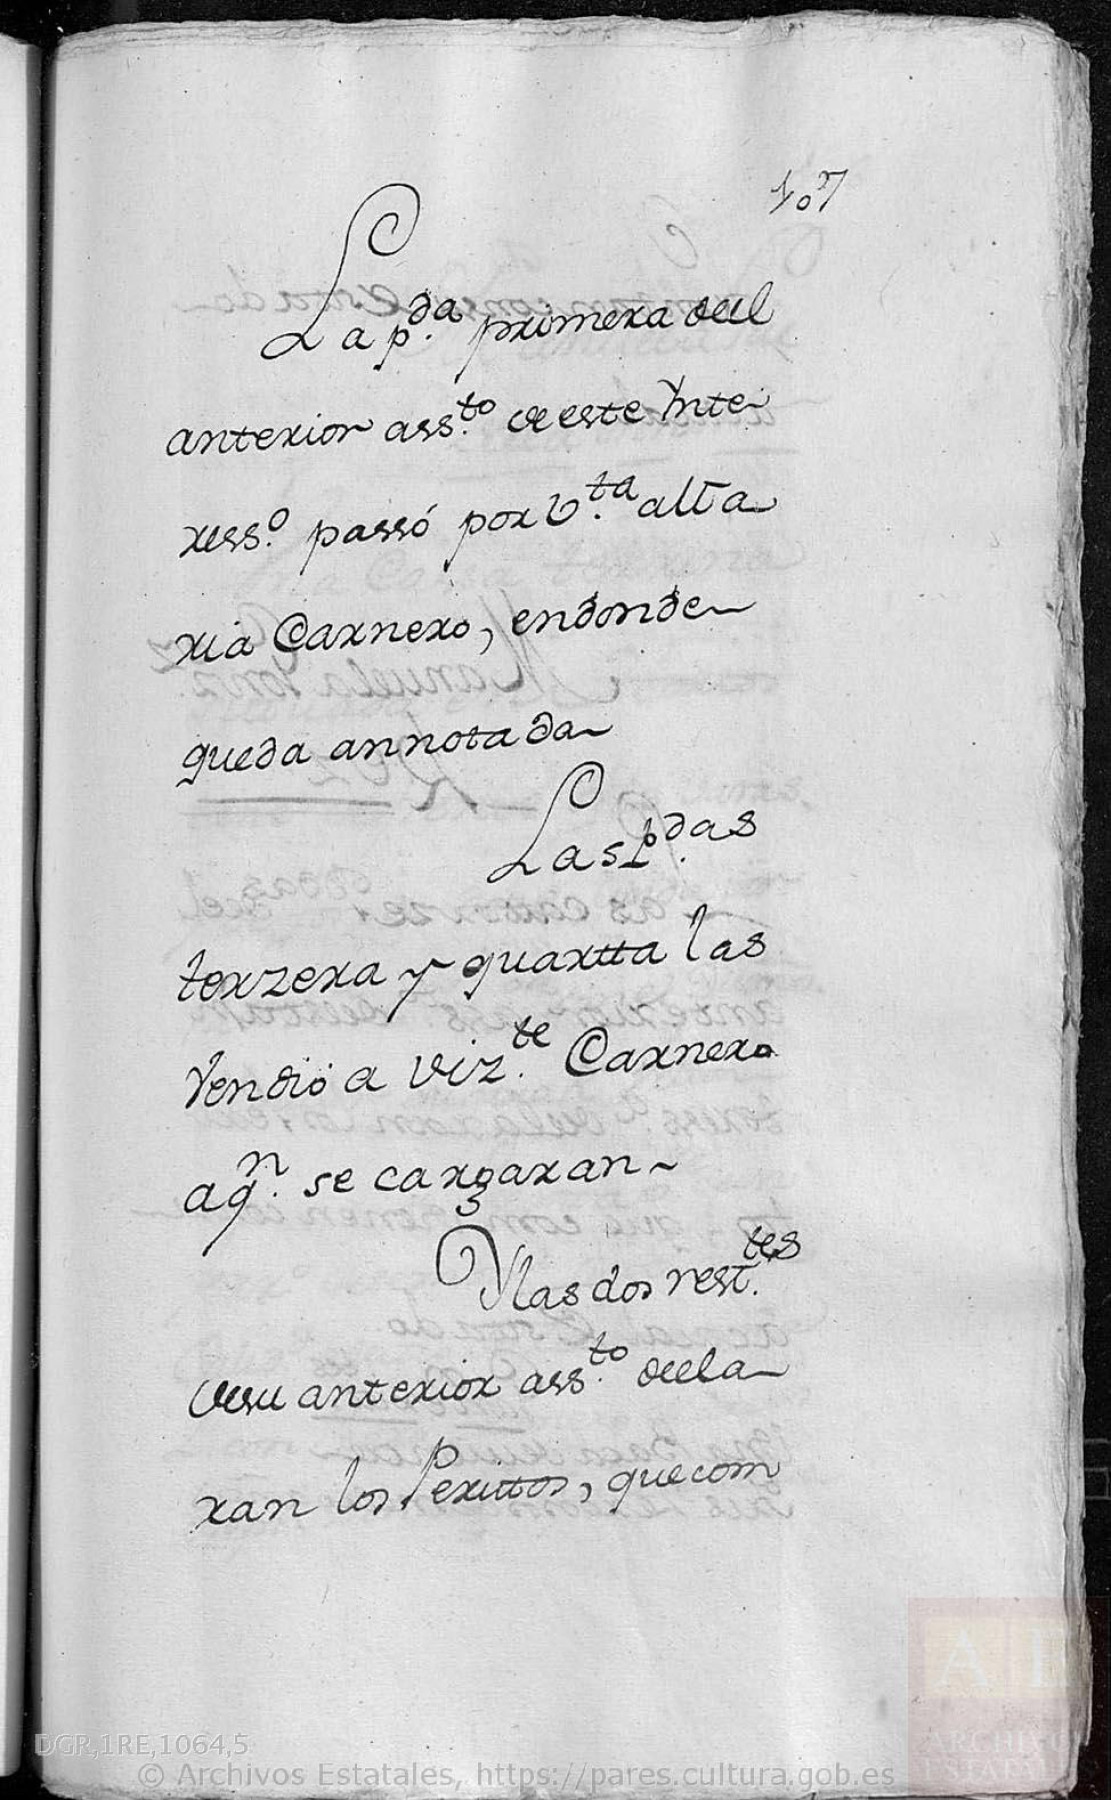 107
La p.da primera del
anterior ass.to de este Ynte
ress.o passó por v.ta alta
ria Carnero, endonde
queda annotada
Las p.das
terzera y quartta las
Vendió a Viz.te Carnero
a q.n se cargaran
Y las dos rest.tes
de su anterior ass.to decla
ran los Perittos, que com
DGR,1RE,1064,5
© Archivos Estatales, https://pares.cultura.gob.es